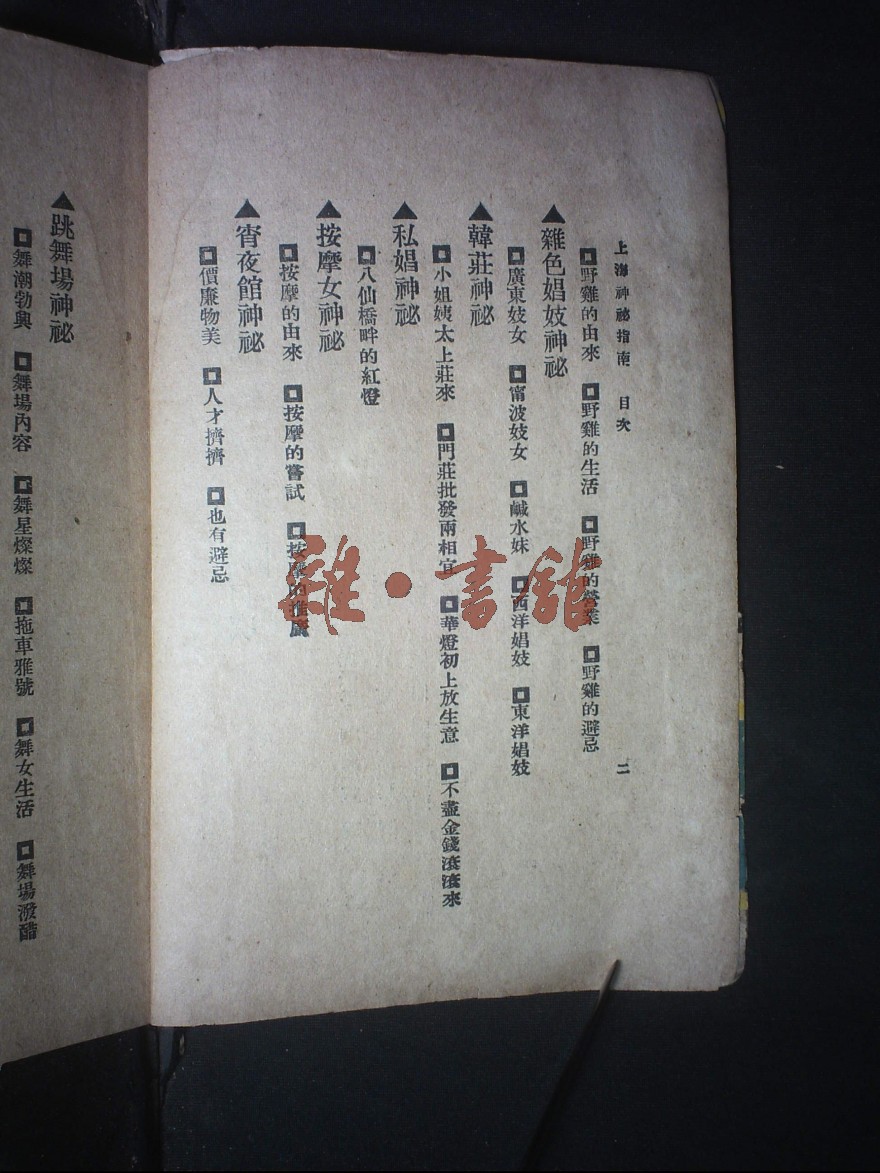 上海神祕指南　目次　二
🞑野雞的由來　🞑野雞的生活　🞑野雞的營業　🞑野雞的避忌
▲雜色娼妓神祕
🞑廣東妓女　🞑甯波妓女　🞑鹹水妹　🞑西洋娼妓　🞑東洋娼妓
▲韓莊神祕
🞑小姐姨太上莊來　🞑門莊批發兩相宜　🞑華燈初上放生意　🞑不盡金錢滾滾來
▲私娼神祕
🞑八仙橋畔的紅燈
▲按摩女神祕
🞑按摩的由來　🞑按摩的嘗試　🞑按摩的推廣
▲宵夜館神祕
🞑價廉物美　🞑人才擠擠　🞑也有避忌
▲跳舞場神祕
🞑舞潮勃興　🞑舞場內容　🞑舞星燦燦　🞑拖車雅號　🞑舞女生活　🞑舞場潑醋
雜·書館